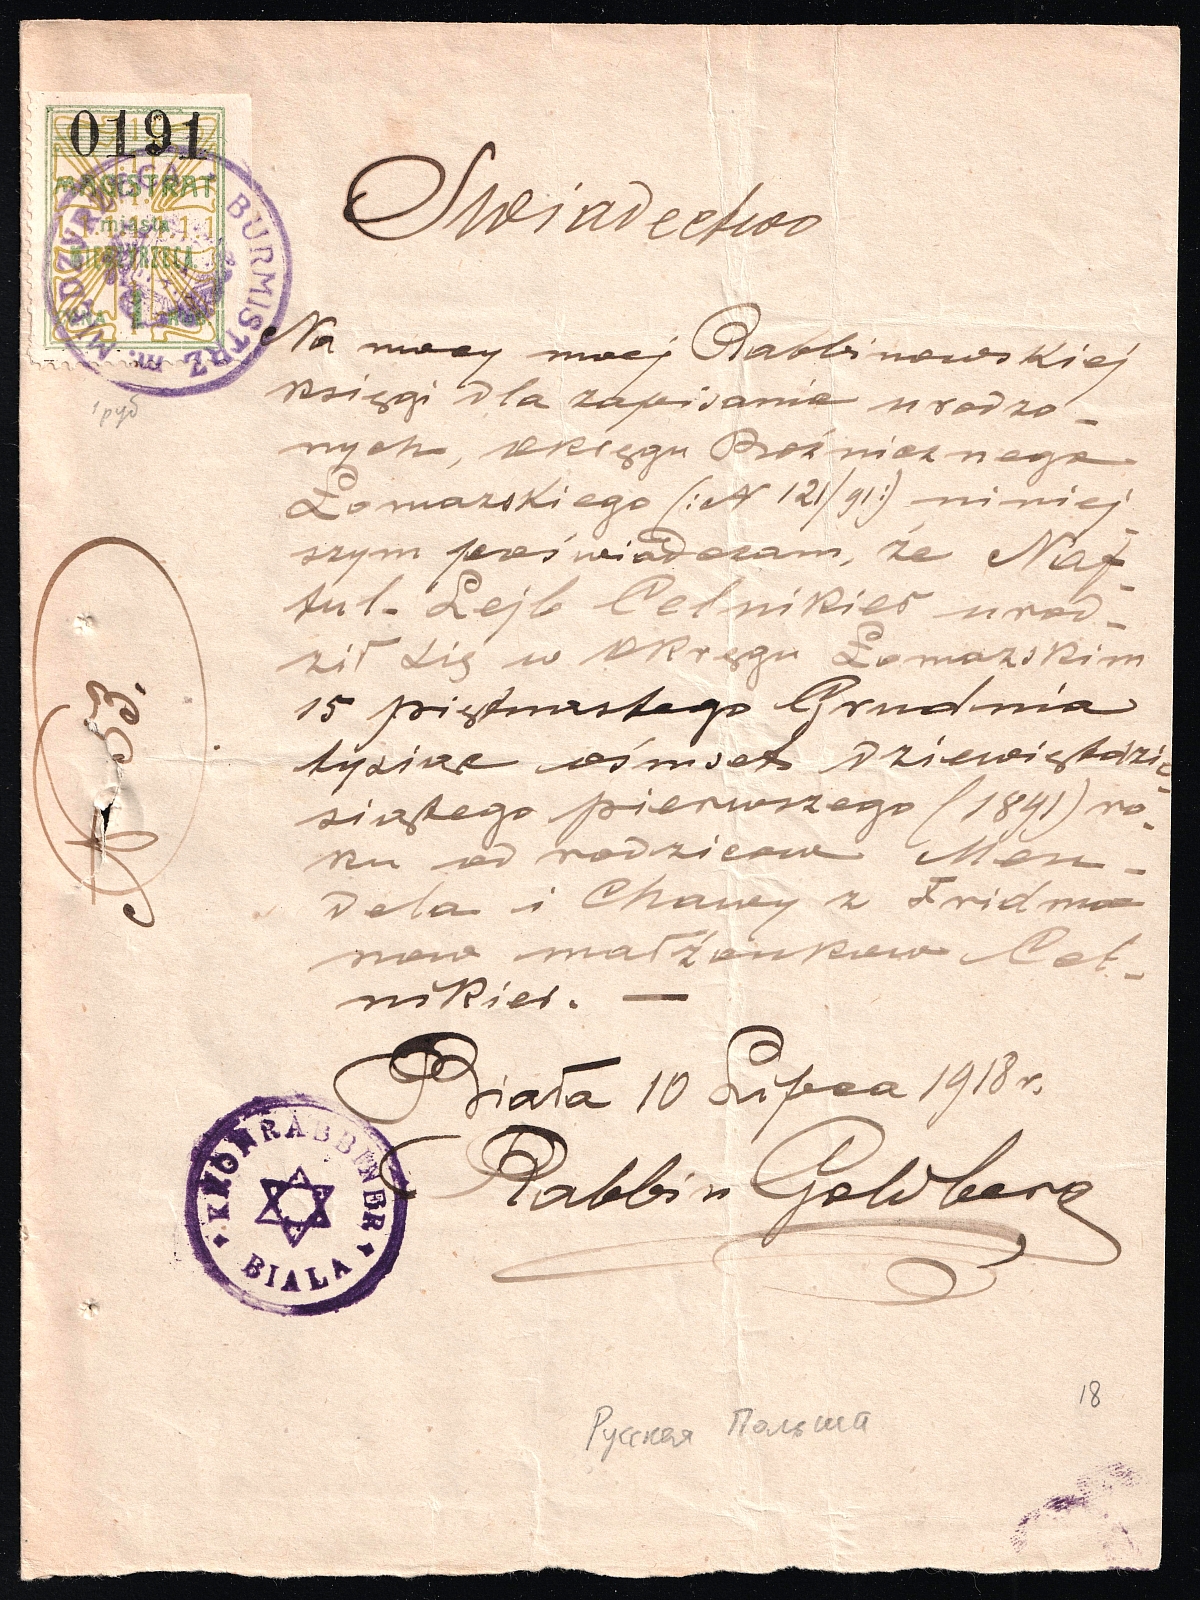 0191
MAGISTRAT
miasta
MIĘDZYRZECA
1
BURMISTRZ m. MIĘDZYRZECA
1 руб
Swiadectwo
Na mocy mocj Rabbinowskiej
księgi dla zapisania urodzo-
nych, okręgu Bożnicznego
Łomazskiego (:N 121/91:) niniej-
szym poświadczam, że Naf-
tul-Lejb Celnikier urod-
ził się w okręgu Łomazskim
15 piętnastego Grudnia
tysiąc ośmset dziewiędzie-
siątego pierwszego (1891) ro-
ku od rodzicow Men-
dela i Chawy z Fridma-
now małżonkow Cel-
nikier. —
Biała 10 Lipca 1918 r.
Rabbin Goldberg
N 53.
KRONRABBINER
BIALA
18
Русская Польша